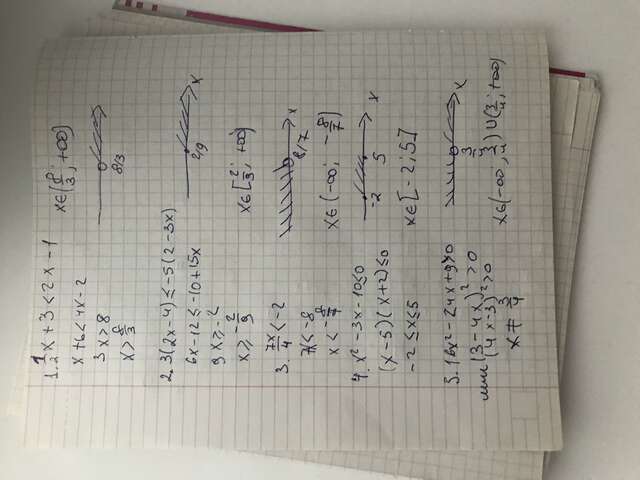 1. 1/2 x + 3 < 2x - 1
x + 6 < 4x - 2
3x > 8
x > 8/3
x ∈ (8/3; +∞)
8/3 x
2. 3(2x - 4) ≤ -5(2 - 3x)
6x - 12 ≤ -10 + 15x
9x ≥ -2
x ≥ -2/9
2/9 x
3. 7x/4 < -2
7x < -8
x < -8/7
8/7 x
x ∈ (-∞; -8/7)
4. x² - 3x - 10 ≤ 0
(x - 5)(x + 2) ≤ 0
-2 ≤ x ≤ 5
-2 5 x
x ∈ [-2; 5]
5. 16x² - 24x + 9 > 0
или (3 - 4x)² > 0
(4x - 3)² > 0
x ≠ 3/4
3/4 x
x ∈ (-∞; 3/4) ∪ (3/4; +∞)